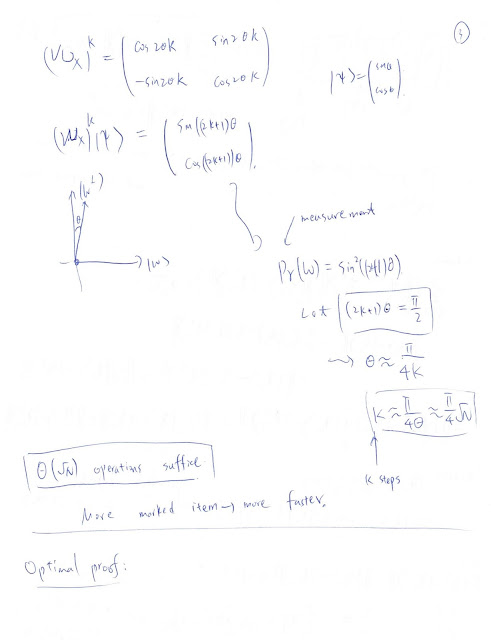 5
(VU_X)^k = ( cos2θk sin2θk
-sin2θk cos2θk )
|ψ⟩ = ( sinθ
cosθ ).
(VU_X)^k |ψ⟩ = ( sin((2k+1)θ
cos((2k+1))θ ).
|w^⊥⟩
θ
→ |w⟩
measurement
Pr(w) = sin²((2k+1)θ)
Let (2k+1)θ = π/2
⇝ θ ≈ π/4k
k ≈ π/4θ ≈ π/4 √N
k steps
θ(√N) operations suffice.
More marked item → more faster.
Optimal proof: